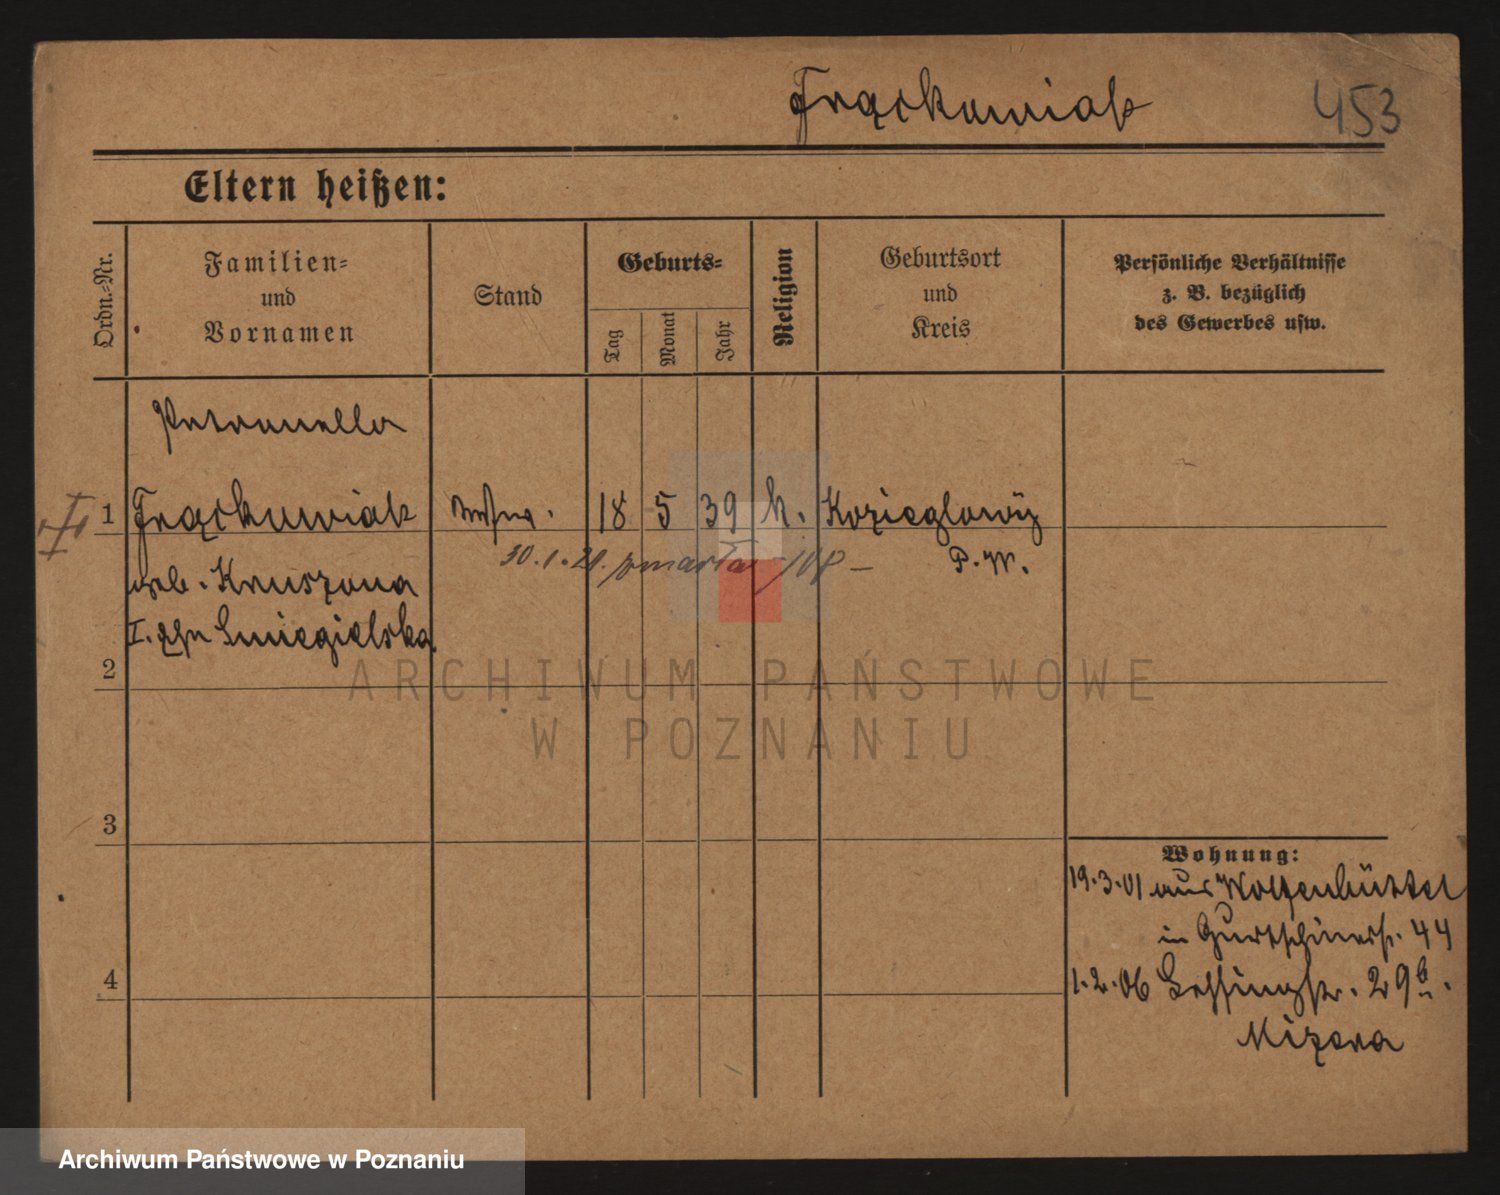 Frąckowiak
453
Eltern heißen:
Ordn.-Nr.
Familien-
und
Vornamen
Stand
Geburts-
Tag
Monat
Jahr
Religion
Geburtsort
und
Kreis
Persönliche Verhältnisse
z. B. bezüglich
des Gewerbes usw.
Petronella
1 Frąckowiak Wwe. 18 5 39 k. Kozieglowy
30.1.20. zmarła P. W.
geb. Kruszona
I. Ehe Smiegielska
2
ARCHIWUM PAŃSTWOWE
W POZNANIU
3
Wohnung:
19.3.01 aus Wolfenbüttel
in Gurtschinerstr. 44
4
1.2.06 Lessingstr. 29
Mizera
Archiwum Państwowe w Poznaniu